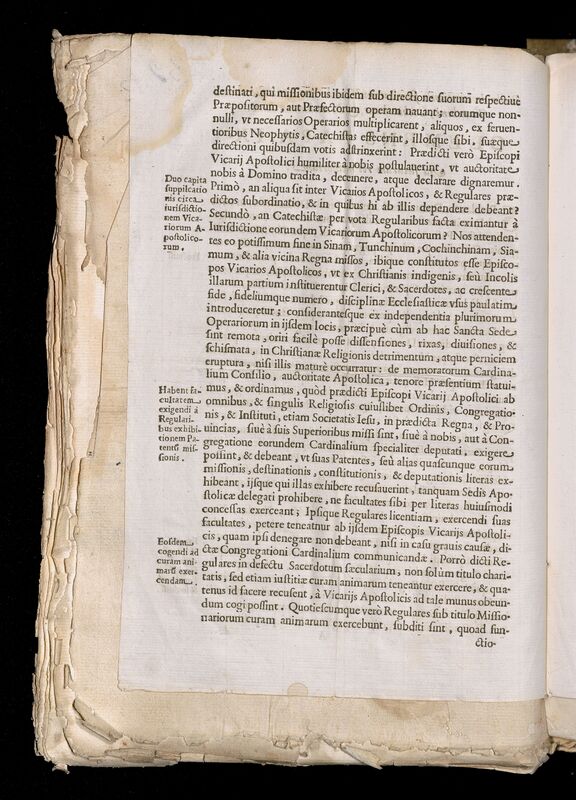 destinati, qui missionibus ibidem sub directione suorum respectiuè
Præpositorum, aut Præfectorum operam nauant; eorumque non-
nulli, vt necessarios Operarios multiplicarent, aliquos, ex feruen-
tioribus Neophytis, Catechistas effecerint, illosque sibi, suæque
directioni quibusdam votis adstrinxerint: Prædicti verò Episcopi
Vicarij Apostolici humiliter à nobis postulauerint, vt auctoritate
nobis à Domino tradita, decernere, atque declarare dignaremur.
Primò, an aliqua sit inter Vicarios Apostolicos, & Regulares præ-
dictos subordinatio, & in quibus hi ab illis dependere debeant?
Secundò, an Catechistæ per vota Regularibus facta eximantur à
Iurisdictione eorundem Vicariorum Apostolicorum? Nos attenden-
tes eo potissimum fine in Sinam, Tunchinum, Cochinchinam, Sia-
mum, & alia vicina Regna missos, ibique constitutos esse Episco-
pos Vicarios Apostolicos, vt ex Christianis indigenis, seù Incolis
illarum partium instituerentur Clerici, & Sacerdotes, ac crescente
fide, fideliumque numero, disciplinæ Ecclesiasticæ vsus paulatim
introduceretur; considerantesque ex independentia plurimorum
Operariorum in ijsdem locis, præcipuè cùm ab hac Sancta Sede
sint remota, oriri facilè posse dissensiones, rixas, diuisiones, &
schismata, in Christianæ Religionis detrimentum, atque perniciem
eruptura, nisi illis maturè occurratur: de memoratorum Cardina-
lium Consilio, auctoritate Apostolica, tenore præsentium statui-
mus, & ordinamus, quòd prædicti Episcopi Vicarij Apostolici ab
omnibus, & singulis Religiosis cuiuslibet Ordinis, Congregatio-
nis, & Instituti, etiam Societatis Iesu, in prædicta Regna, & Pro-
uincias, siuè à suis Superioribus missi sint, siuè à nobis, aut à Con-
gregatione eorundem Cardinalium specialiter deputati, exigere
possint, & debeant, vt suas Patentes, seù alias quascunque eorum
missionis, destinationis, constitutionis, & deputationis literas ex-
hibeant, ijsque qui illas exhibere recusauerint, tanquam Sedis Apo-
stolicæ delegati prohibere, ne facultates sibi per literas huiusmodi
concessas exerceant; Ipsique Regulares licentiam, exercendi suas
facultates, petere teneantur ab ijsdem Episcopis Vicarijs Apostoli-
cis, quam ipsi denegare non debeant, nisi in casu grauis causæ, di-
ctæ Congregationi Cardinalium communicandæ. Porrò dicti Re-
gulares in defectu Sacerdotum sæcularium, non solùm titulo chari-
tatis, sed etiam iustitiæ curam animarum teneantur exercere, & qua-
tenus id facere recusent, à Vicarijs Apostolicis ad tale munus obeun-
dum cogi possint. Quotiescumque verò Regulares sub titulo Missio-
nariorum curam animarum exercebunt, subditi sint, quoad fun-
ctio-
Duo capita
supplicatio
nis circa
iurisdictio-
nem Vica-
riorum A-
postolico-
rum.
Habent fa-
cultatem
exigendi à
Regulari-
bus exhibi-
tionem Pa-
tentū mis-
sionis.
Eosdem
cogendi ad
curam ani-
marū exer-
cendam.